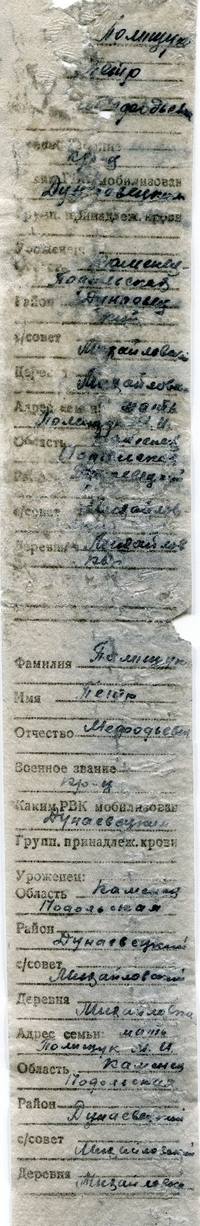 Полищук
Петр
Мефодьевич
кр-ц
мобилизован
Дунаевецким
Групп. принадлеж. крови
Уроженец:
Каменец-
Подольская
Район Дунаевец
кий
с/совет
Михайловский
Михайловка
Адрес семьи: мать
Полищук М.И.
Область Каменец
Подольская
с/совет Михайлов
Деревня Михайлов
ка
Фамилия Полищук
Имя Петр
Отчество Мефодьевич
Военное звание
кр-ц
Каким РВК мобилизован
Дунаевецким
Групп. принадлеж. крови
Уроженец:
Область Каменец
Подольская
Район
Дунаевецкий
с/совет
Михайловский
Деревня
Михайловка
Адрес семьи: мать
Полищук М.И.
Область Каменец
Подольская
Район
Дунаевецкий
с/совет
Михайловский
Деревня Михайловка